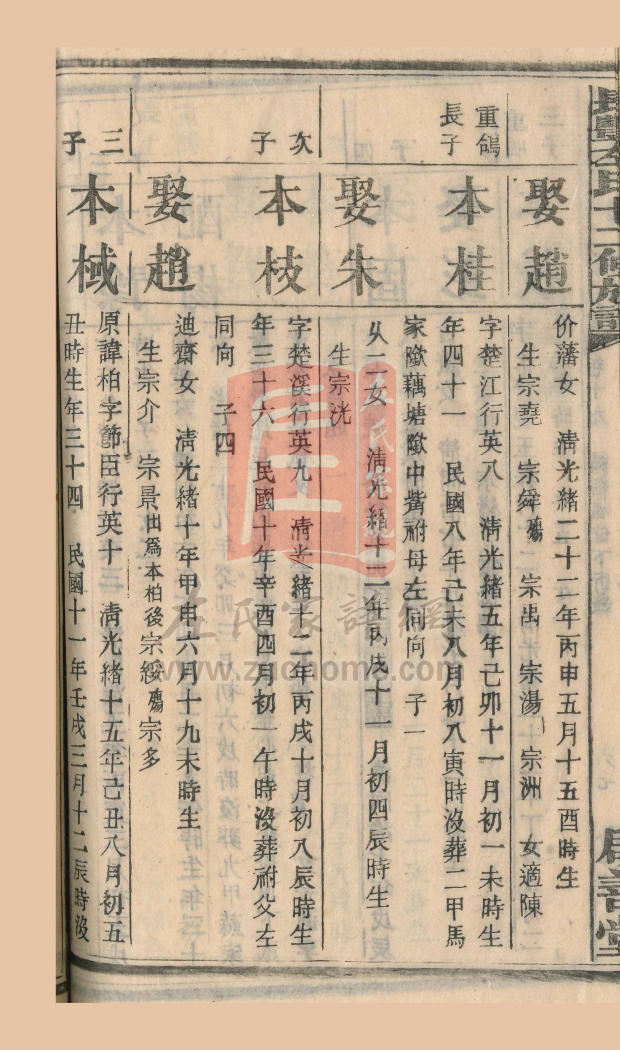 左氏十二修族譜
娶趙
价藩女　清光緒二十二年丙申五月十五酉時生
生宗堯　宗舜殤　宗禹　宗湯　宗洲　女適陳
重鴿長子
本桂
字楚江行英八　清光緒五年己卯十一月初一未時生
年四十一　民國八年己未八月初八寅時沒葬二甲馬
家隞藕塘隞中嘴祔母左同向　子一
娶朱
从二女　清光緒十二年丙戌十一月初四辰時生
生宗洸
次子
本枝
字楚溪行英九　清光緒十二年丙戌十月初八辰時生
年三十六　民國十年辛酉四月初一午時沒葬祔父左
同向　子四
娶趙
迪齋女　清光緒十年甲申六月十九未時生
生宗介　宗景出爲本柏後宗綏殤宗多
三子
本棫
原諱柏字節臣行英十三　清光緒十五年己丑八月初五
丑時生年三十四　民國十一年壬戌三月十二辰時沒
左氏家譜網